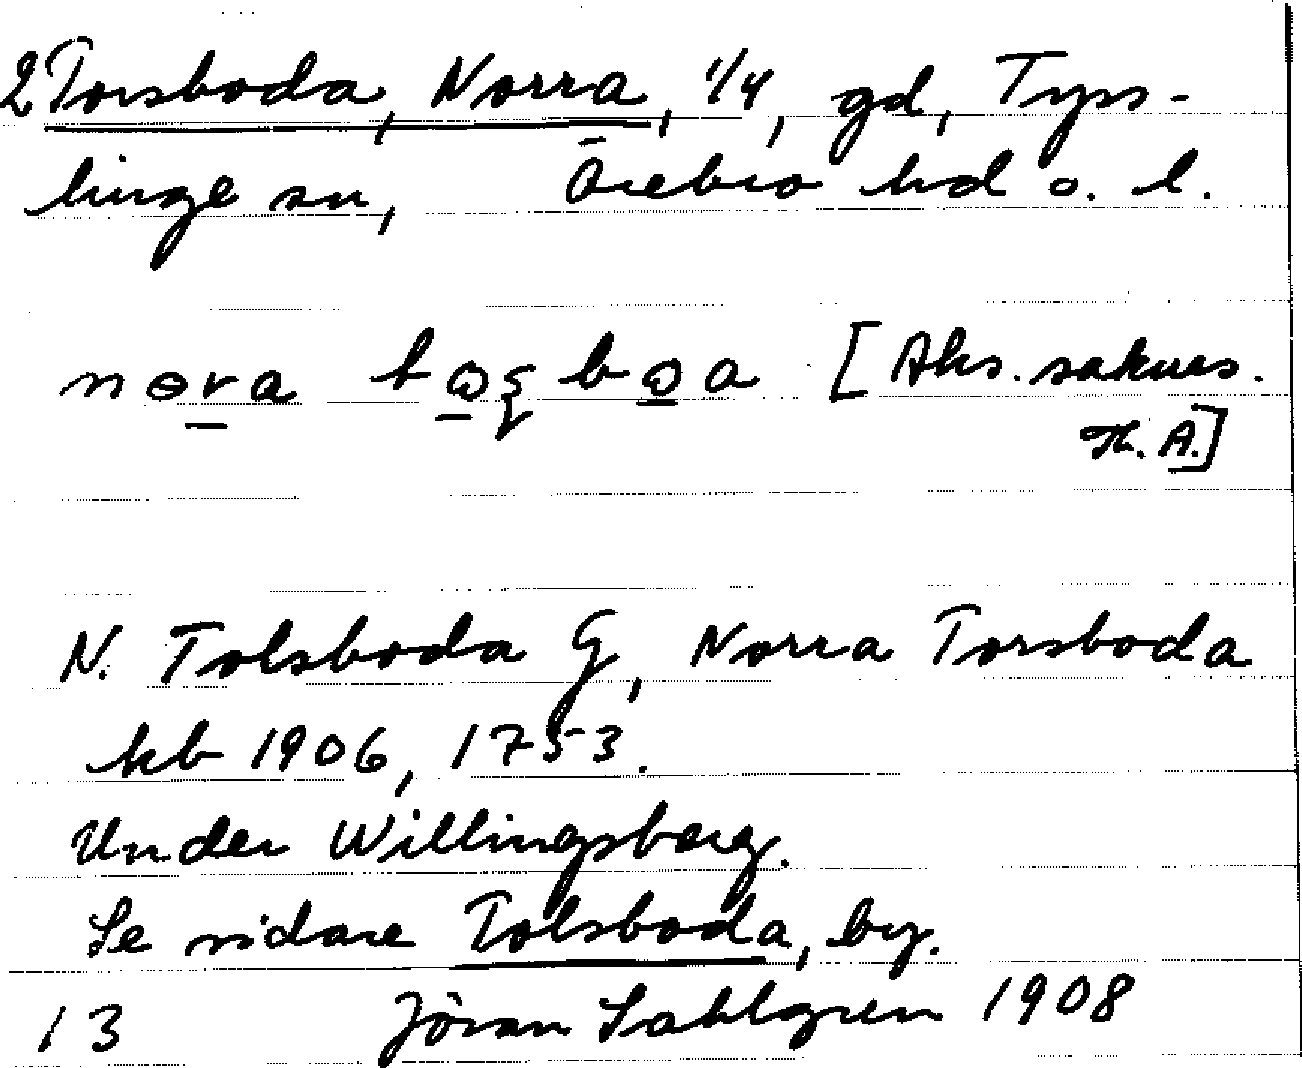 2 Torsboda, Norra, 1/4, gd, Tyss-
linge sn, Örebro hd o. l.
nɵra bo̲a [Aks. saknas.
Th. A.]
N. Tolsboda G, Norra Torsboda
kb 1906, 1753.
Under Willingsberg.
Se vidare Tolsboda, by.
13 Jöran Sahlgren 1908